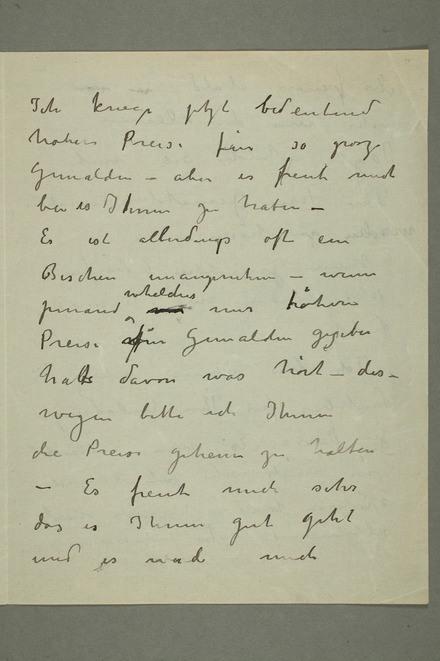 Ich kriege jetzt bedeutend
hohere Preise für so groze
Gemälden – aber es freut mich
bei es Ihnen zu haben –
Es ist allerdings oft ein
Bischen unangenehm – wenn
jemand welches mir höhere
Preise für Gemalden gegeben
hat davon was hört – des-
wegen bitte ich Ihnen
die Preise geheim zu halten
– Es freut mich sehr
das es Ihnen gut geht
und es mich